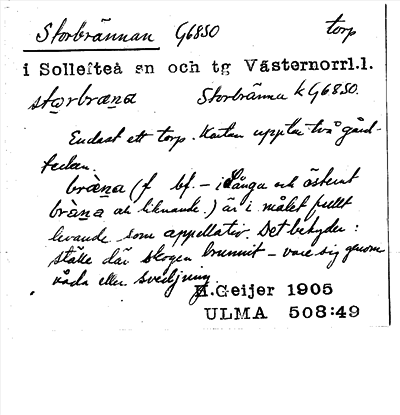 Storbrännan G6850 torp
i Sollefteå sn och tg Västernorrl.l.
storbræna Storbränna k G6850.
Endast ett torp. Kartan upptar två gård-
tecken.
bræ̀na (f bf. – i Långa och österut
bræ̀na och liknande.) är i målet fullt
levande som appellativ. Det betyder:
ställe där skogen brunnit – vare sig genom
våda eller svedjning.
H.Geijer 1905
ULMA 508:49